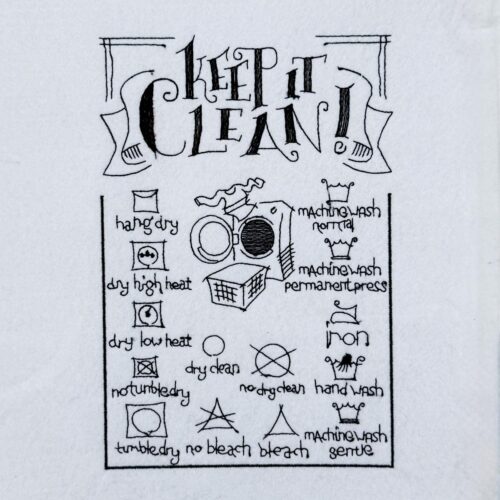 KEEP IT
CLEAN!
hang dry
dry high heat
dry low heat
no tumble dry
tumble dry
dry clean
no dry clean
no bleach
bleach
machine wash
normal
machine wash
permanent press
iron
hand wash
machine wash
gentle